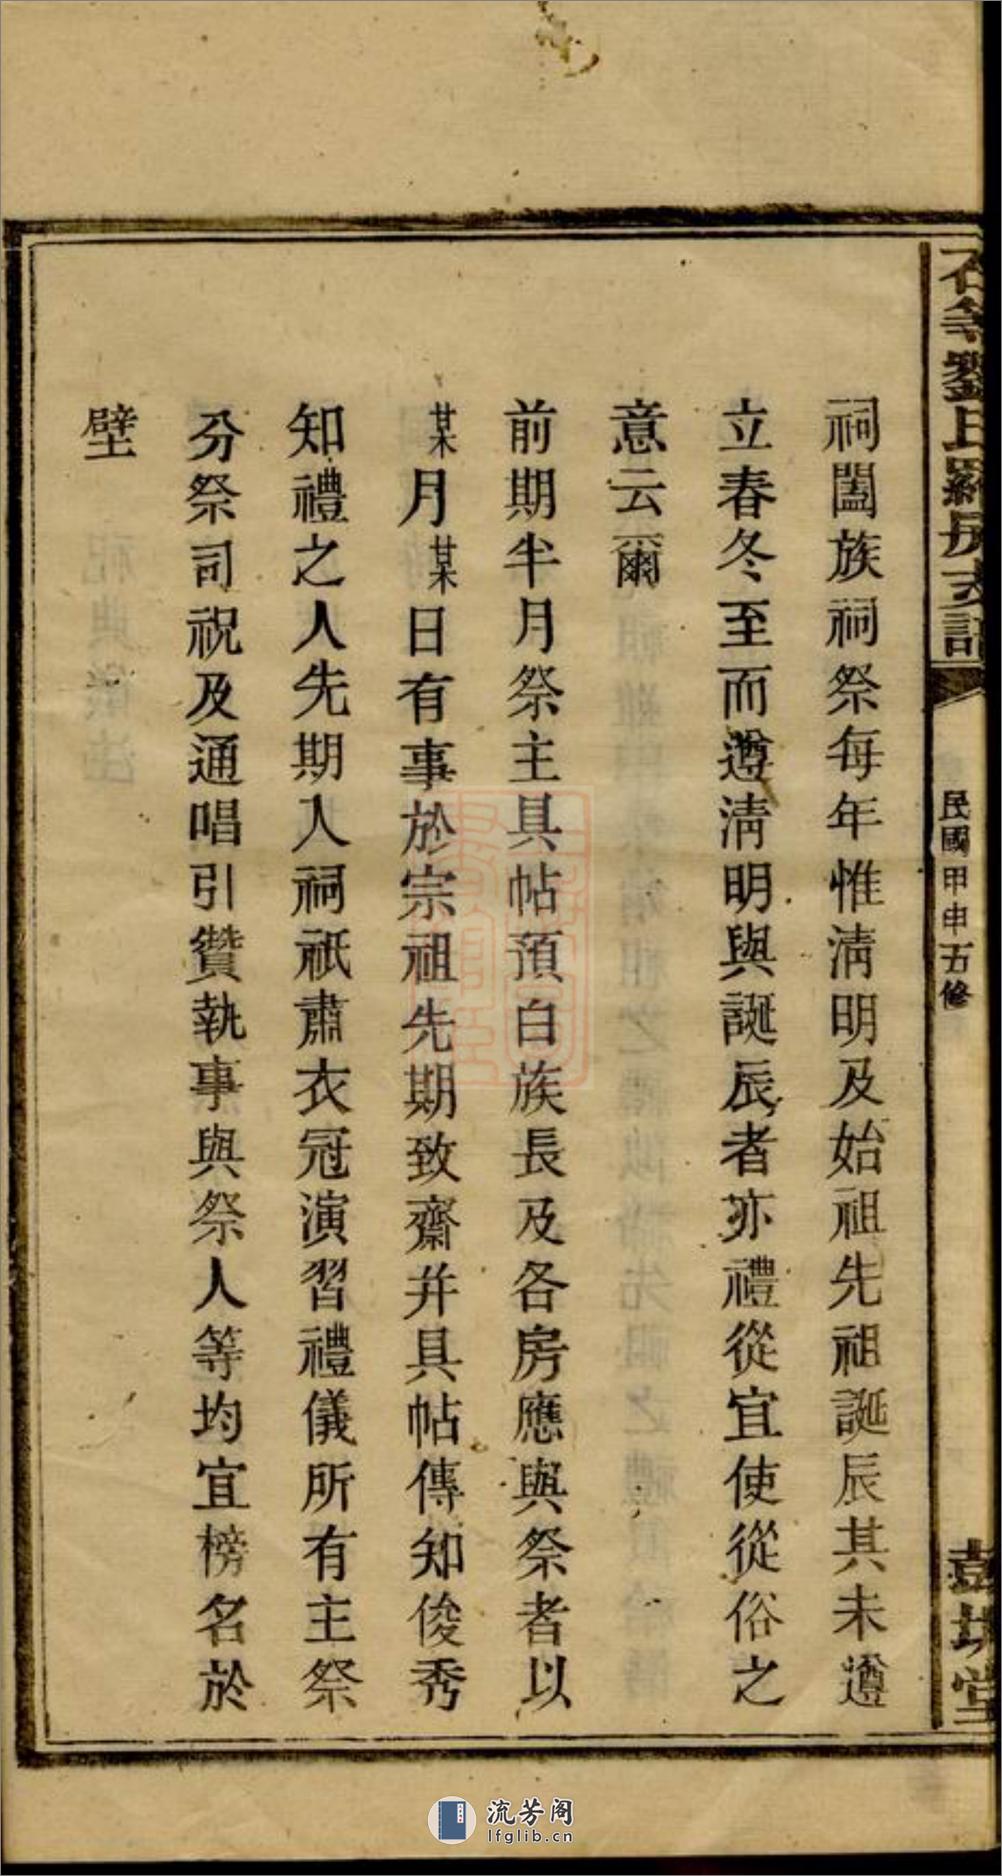 劉氏羅房支譜
民國甲申五修
彭城堂
祠闔族祠祭每年惟淸明及始祖先祖誕辰其未遵
立春冬至而遵淸明與誕辰者亦禮從宜使從俗之
意云爾
前期半月祭主具帖預白族長及各房應與祭者以
某月某日有事於宗祖先期致齋并具帖傳知俊秀
知禮之人先期入祠祇肅衣冠演習禮儀所有主祭
分祭司祝及通唱引贊執事與祭人等均宜榜名於
壁
流芳阁
lfglib.cn